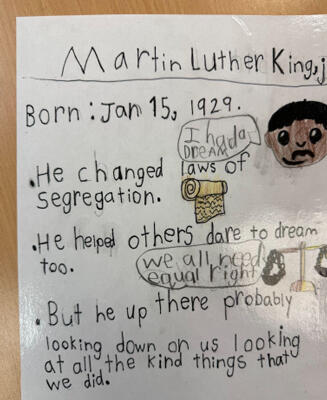 Martin Luther King, j
Born: Jan 15, 1929.
I had a
DREAM
• He changed laws of
segregation.
• He helped others dare to dream
too.
we all need
equal right
• But he up there probably
looking down on us looking
at all the kind things that
we did.